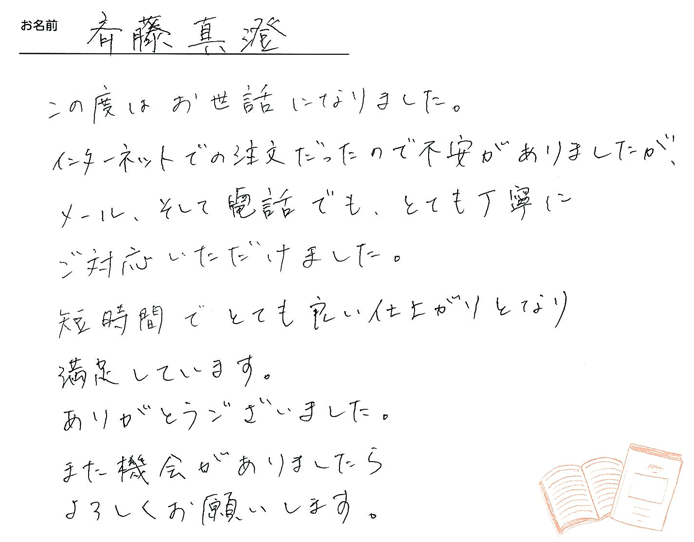 お名前 斉藤真澄
この度はお世話になりました。
インターネットでの注文だったので不安がありましたが、
メール、そして電話でも、とても丁寧に
ご対応いただけました。
短時間でとても良い仕上がりとなり
満足しています。
ありがとうございました。
また機会がありましたら
よろしくお願いします。